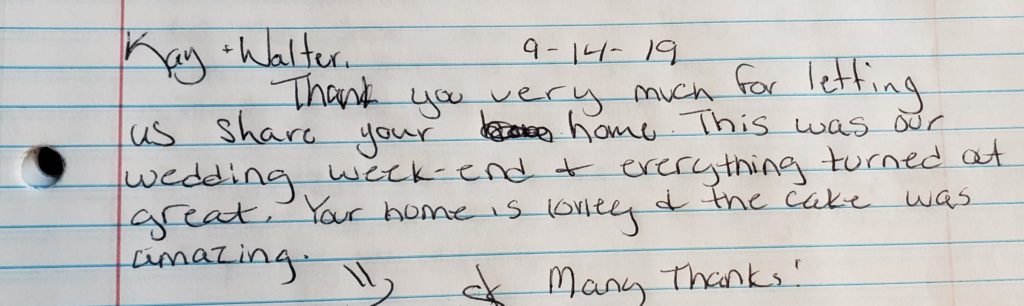 Kay + Walter,
9-14-19
Thank you very much for letting
us share your home. This was our
wedding week-end & everything turned out
great. Your home is lovely & the cake was
amazing.
& Many Thanks!